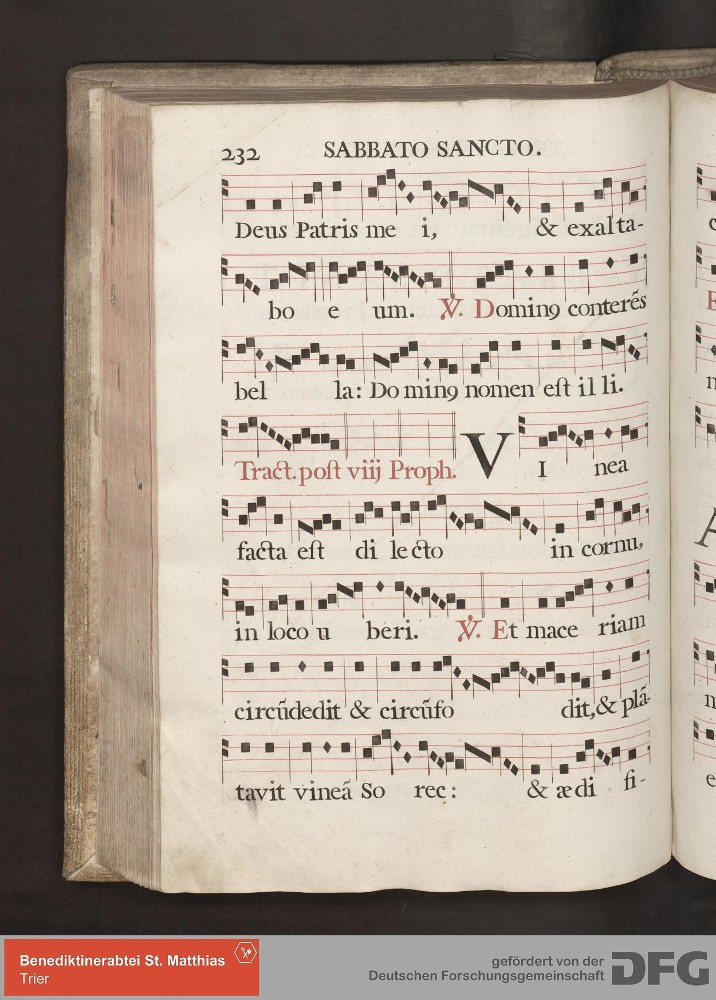 232 SABBATO SANCTO.
Deus Patris me i, & exalta-
bo e um. ℣. Dominꝯ conterẽs
bel la: Do minꝯ nomen eſt il li.
Tract. poſt viij Proph. VI nea
facta eſt di lecto in cornu,
in loco u beri. ℣. Et mace riam
circũdedit & circũfo dit, & plã-
tavit vineã So rec: & ædi fi-
Benediktinerabtei St. Matthias
Trier
gefördert von der
Deutschen Forschungsgemeinschaft
DFG